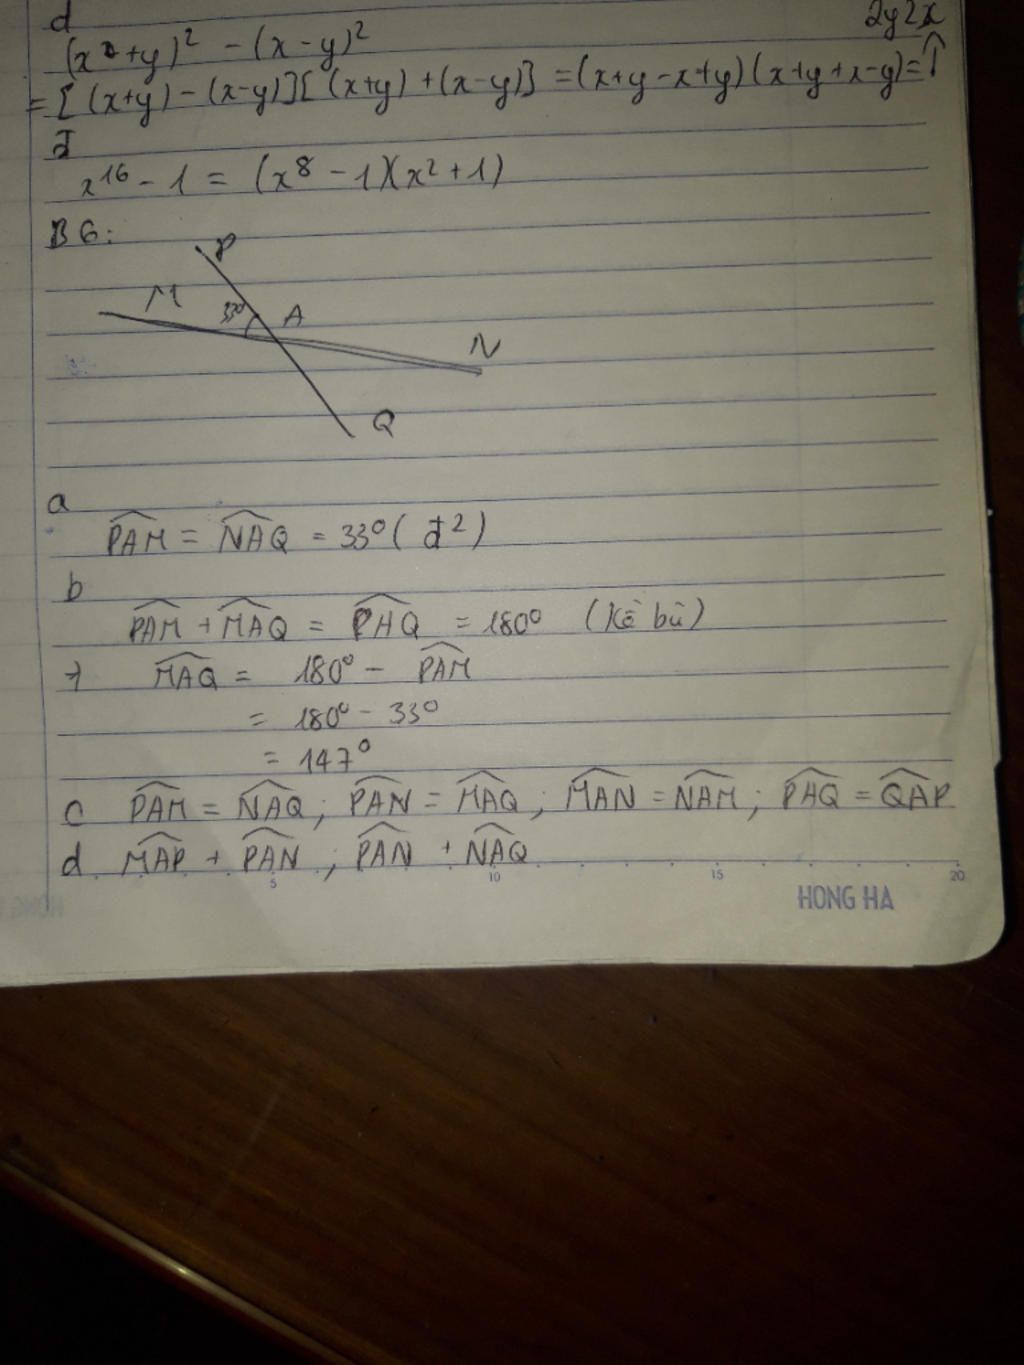 d
2y2x
(x+y)² - (x-y)²
= [(x+y) - (x-y)][(x+y) + (x-y)] = (x+y-x+y)(x+y+x-y) = ↑
đ
x¹⁶ - 1 = (x⁸ - 1)(x² + 1)
B6:
P
M 33° A
N
Q
a
PAM = NAQ = 33° (đ²)
b
PAM + MAQ = PAQ = 180° (Kề bù)
MAQ = 180° - PAM
= 180° - 33°
= 147°
c PAM = NAQ; PAN = MAQ; MAN = NAM; PAQ = QAP
d MAP + PAN; PAN + NAQ
5 10 15 20
HONG HA